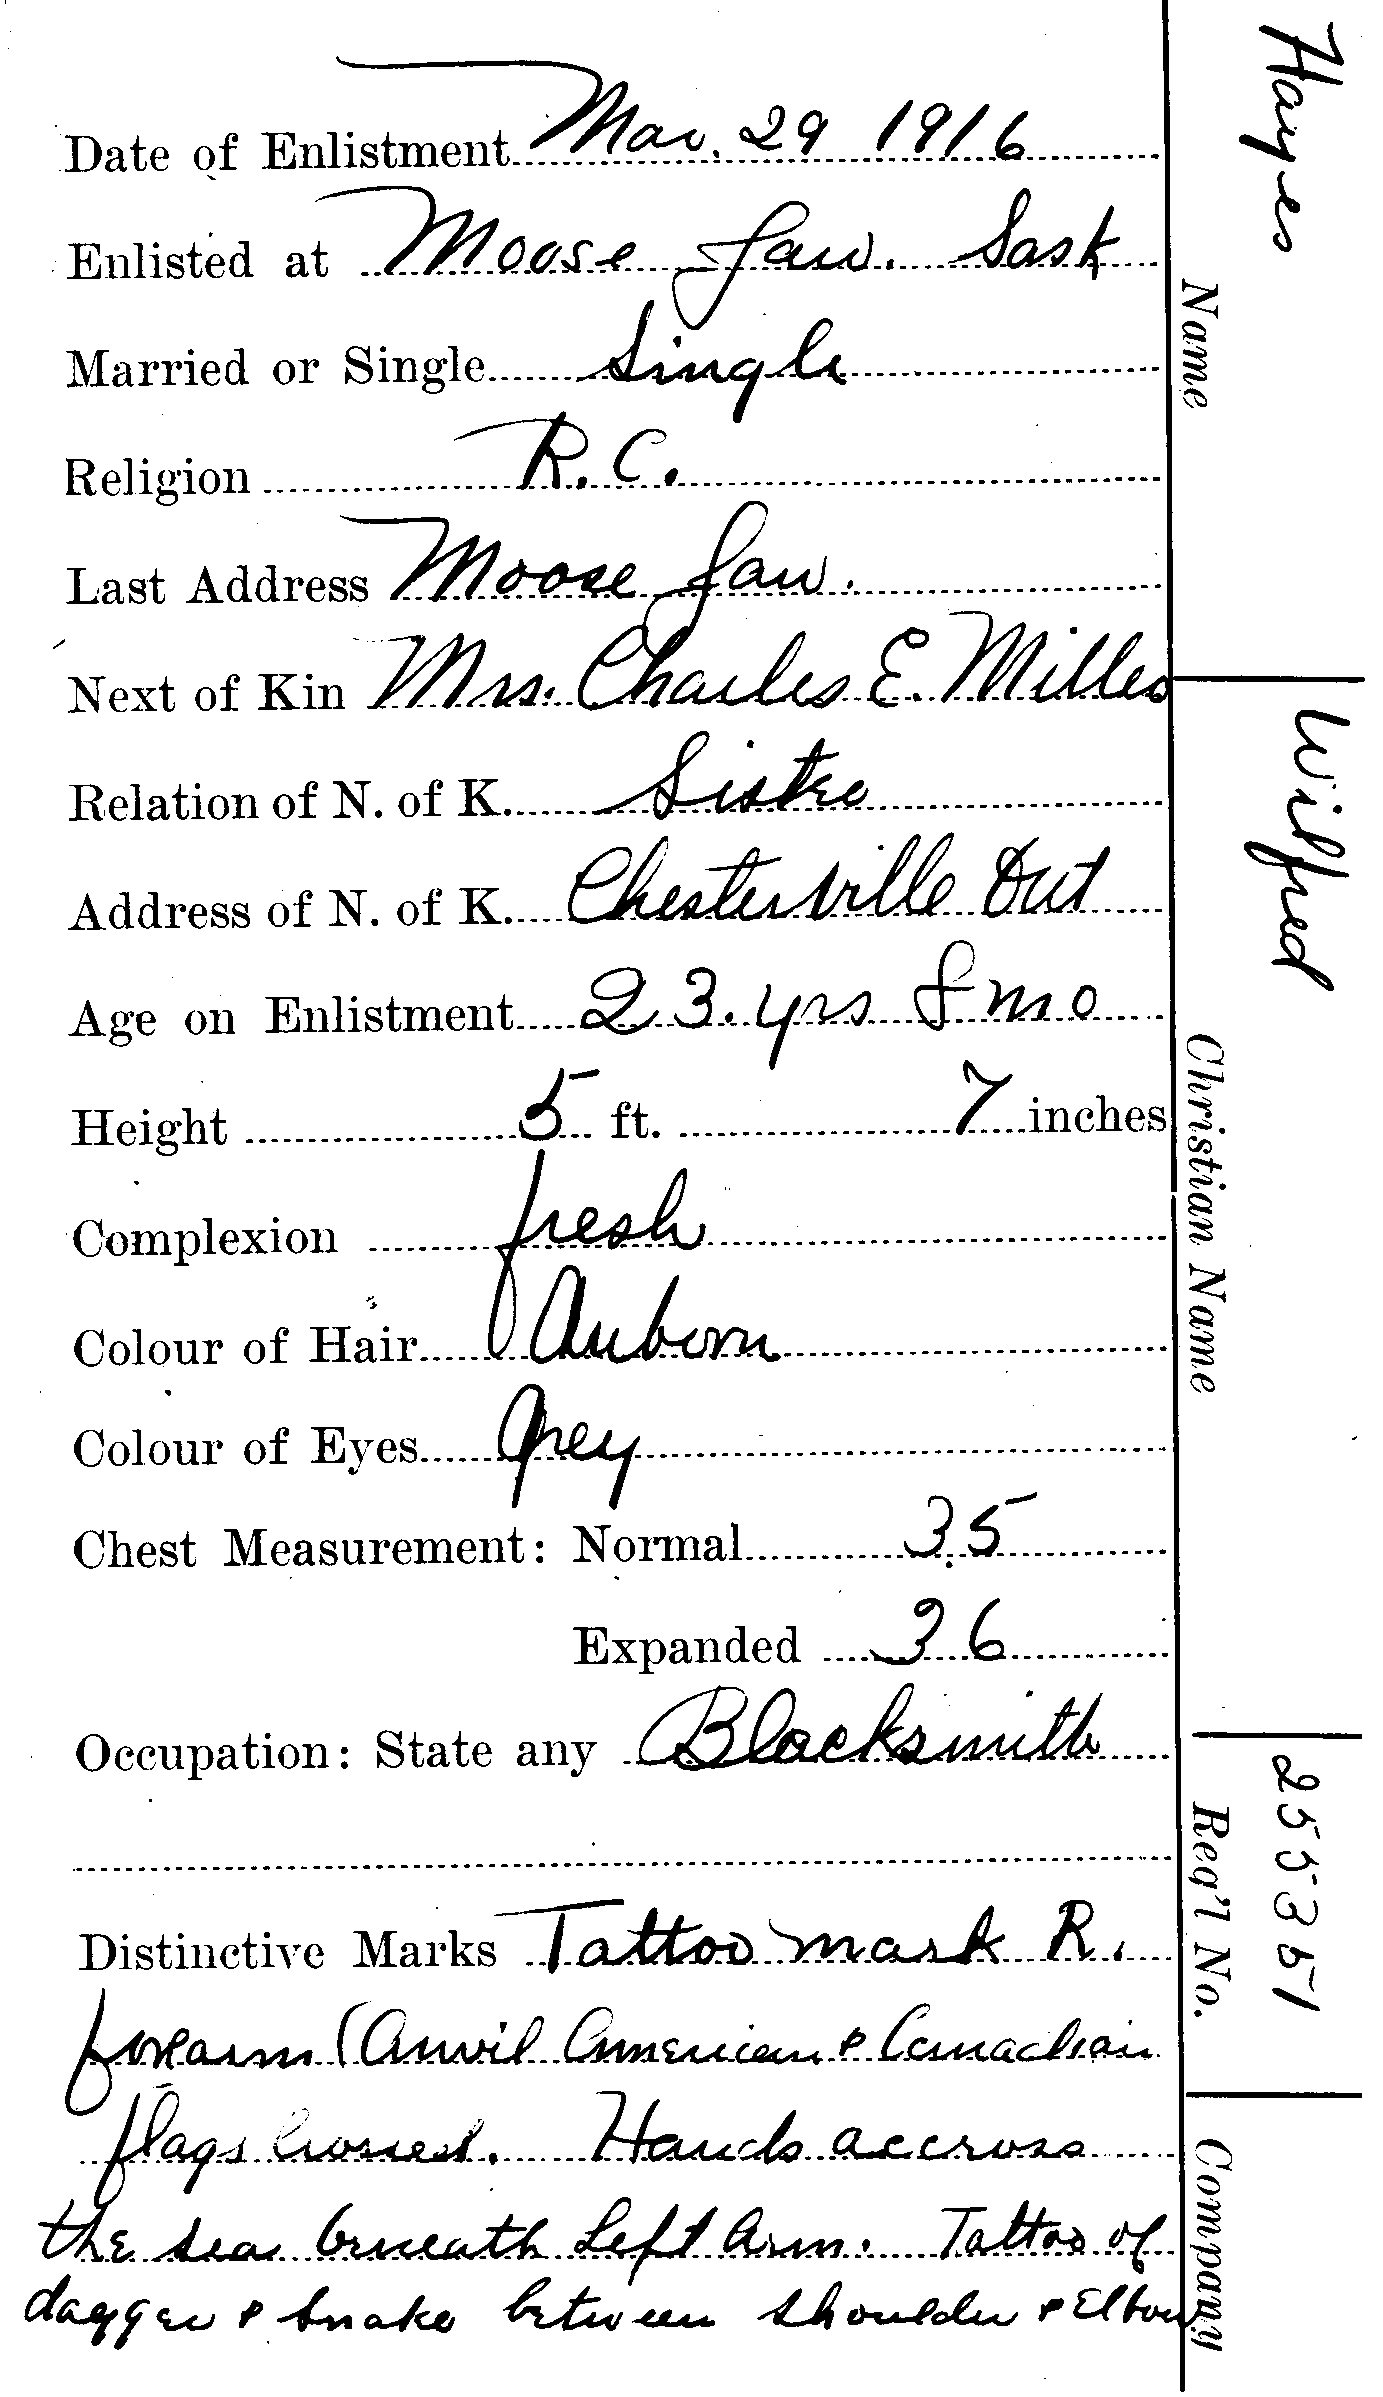 Date of Enlistment Mar. 29 1916
Enlisted at Moose Jaw. Sask
Married or Single Single
Religion R. C.
Last Address Moose Jaw.
Next of Kin Mrs. Charles E. Miller
Relation of N. of K. Sister
Address of N. of K. Chesterville Ont
Age on Enlistment 23. yrs 8 mo
Height 5 ft. 7 inches
Complexion fresh
Colour of Hair Auborn
Colour of Eyes Grey
Chest Measurement: Normal 35
Expanded 36
Occupation: State any Blacksmith
Distinctive Marks Tattoo mark R.
forearm (Anvil American & Canadian
flags crossed. Hands accross
the sea beneath Left Arm. Tattoo of
dagger & snake between shoulder & Elbow
Hayes
Name
Wilfred
Christian Name
255351
Reg'l No.
Company